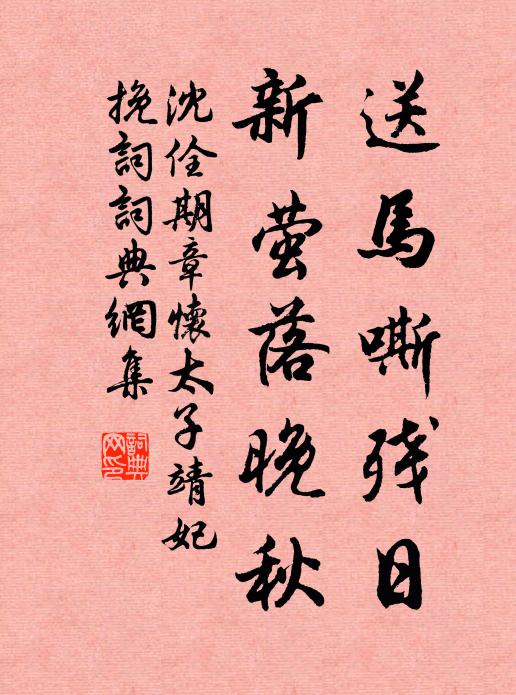 送馬嘶残日
新萤落晚秋
沈佺期章懷太子靖妃
挽詞詞典網集
詞典網印